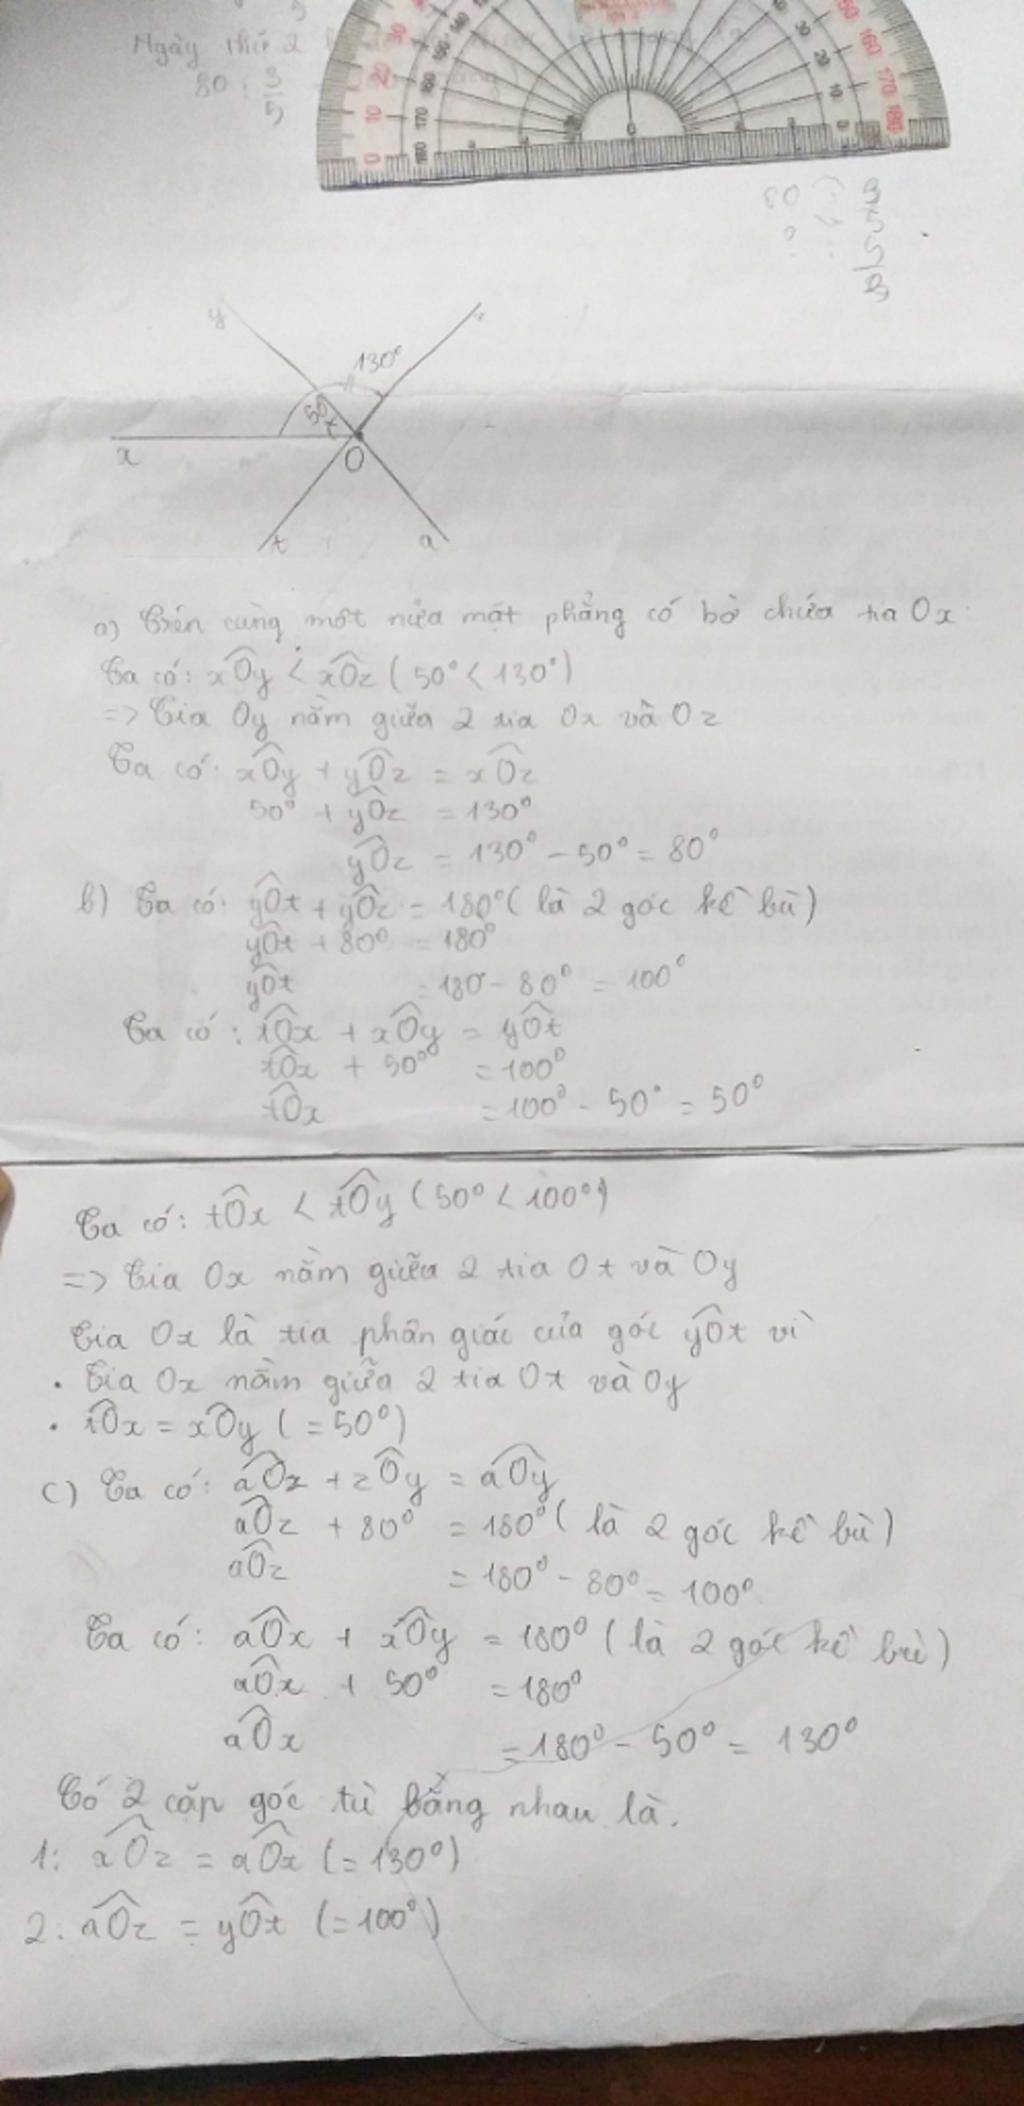 Ngày thứ 2
80 : 3/5
80 3/5
? : 5/3
y
130°
50°
x
O
t
a
a) Trên cùng một nửa mặt phẳng có bờ chứa tia Ox
Ta có: xOy < xOz (50° < 130°)
=> Tia Oy nằm giữa 2 tia Ox và Oz
Ta có: xOy + yOz = xOz
50° + yOz = 130°
yOz = 130° - 50° = 80°
b) Ta có: yOt + yOz = 180° (là 2 góc kề bù)
yOt + 80° = 180°
yOt = 180 - 80° = 100°
Ta có: tOx + xOy = yOt
tOx + 50° = 100°
tOx = 100° - 50° = 50°
Ta có: tOx < tOy (50° < 100°)
=> Tia Ox nằm giữa 2 tia Ot và Oy
Tia Ox là tia phân giác của góc yOt vì
• Tia Ox nằm giữa 2 tia Ot và Oy
• tOx = xOy (= 50°)
c) Ta có: aOz + zOy = aOy
aOz + 80° = 180° (là 2 góc kề bù)
aOz = 180° - 80° = 100°
Ta có: aOx + xOy = 180° (là 2 góc kề bù)
aOx + 50° = 180°
aOx = 180° - 50° = 130°
Có 2 cặp góc tù bằng nhau là.
1: xOz = aOx (= 130°)
2: aOz = yOt (= 100°)